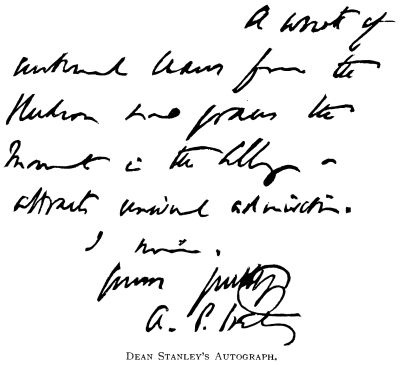 A wreath of
autumnal leaves from the
Hudson now graces the
Monument in the Abbey &
attracts universal admiration.
I remain.
yours gratefully
A. P. Stanley
DEAN STANLEY'S AUTOGRAPH.